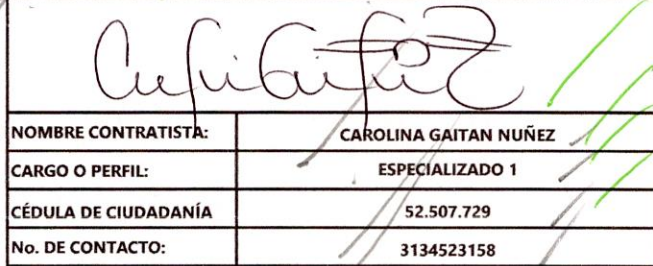 NOMBRE CONTRATISTA: CAROLINA GAITAN NUÑEZ
CARGO O PERFIL: ESPECIALIZADO 1
CÉDULA DE CIUDADANÍA 52.507.729
No. DE CONTACTO: 3134523158